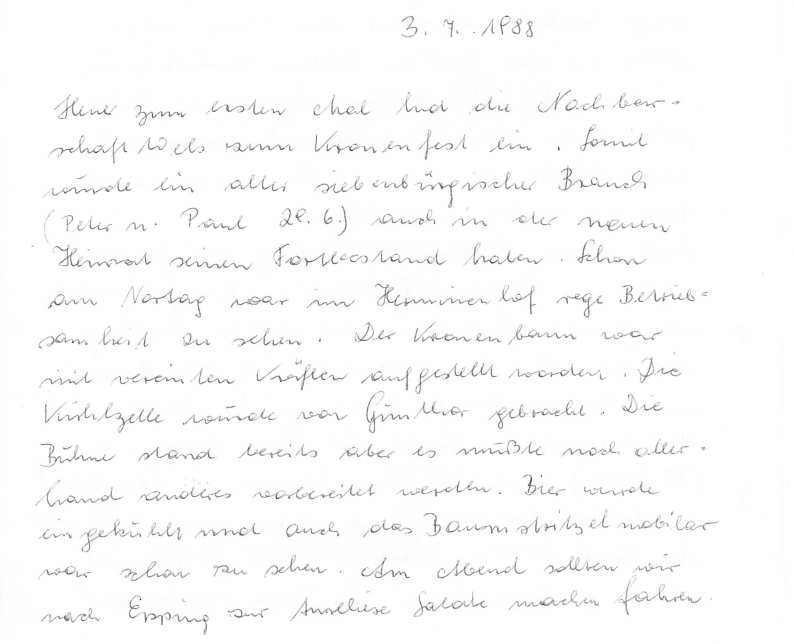 3. 7. 1988
Heuer zum ersten Mal lud die Nachbar-
schaft Wels zum Kronenfest ein. Somit
würde ein alter siebenbürgischer Brauch
(Peter u. Paul 29. 6.) auch in der neuen
Heimat seinen Fortbestand haben. Schon
am Vortag war im Herminenhof rege Betrieb-
samkeit zu sehen. Der Kronenbaum war
mit vereinten Kräften aufgestellt worden. Die
Kühlzelle wurde von Günther gebracht. Die
Bühne stand bereits aber es mußte noch aller-
hand anderes vorbereitet werden. Bier wurde
eingekühlt und auch das Baumstritzelmobilar
war schon zu sehen. Am Abend sollten wir
nach Erpping zur Anneliese Salate machen fahren.